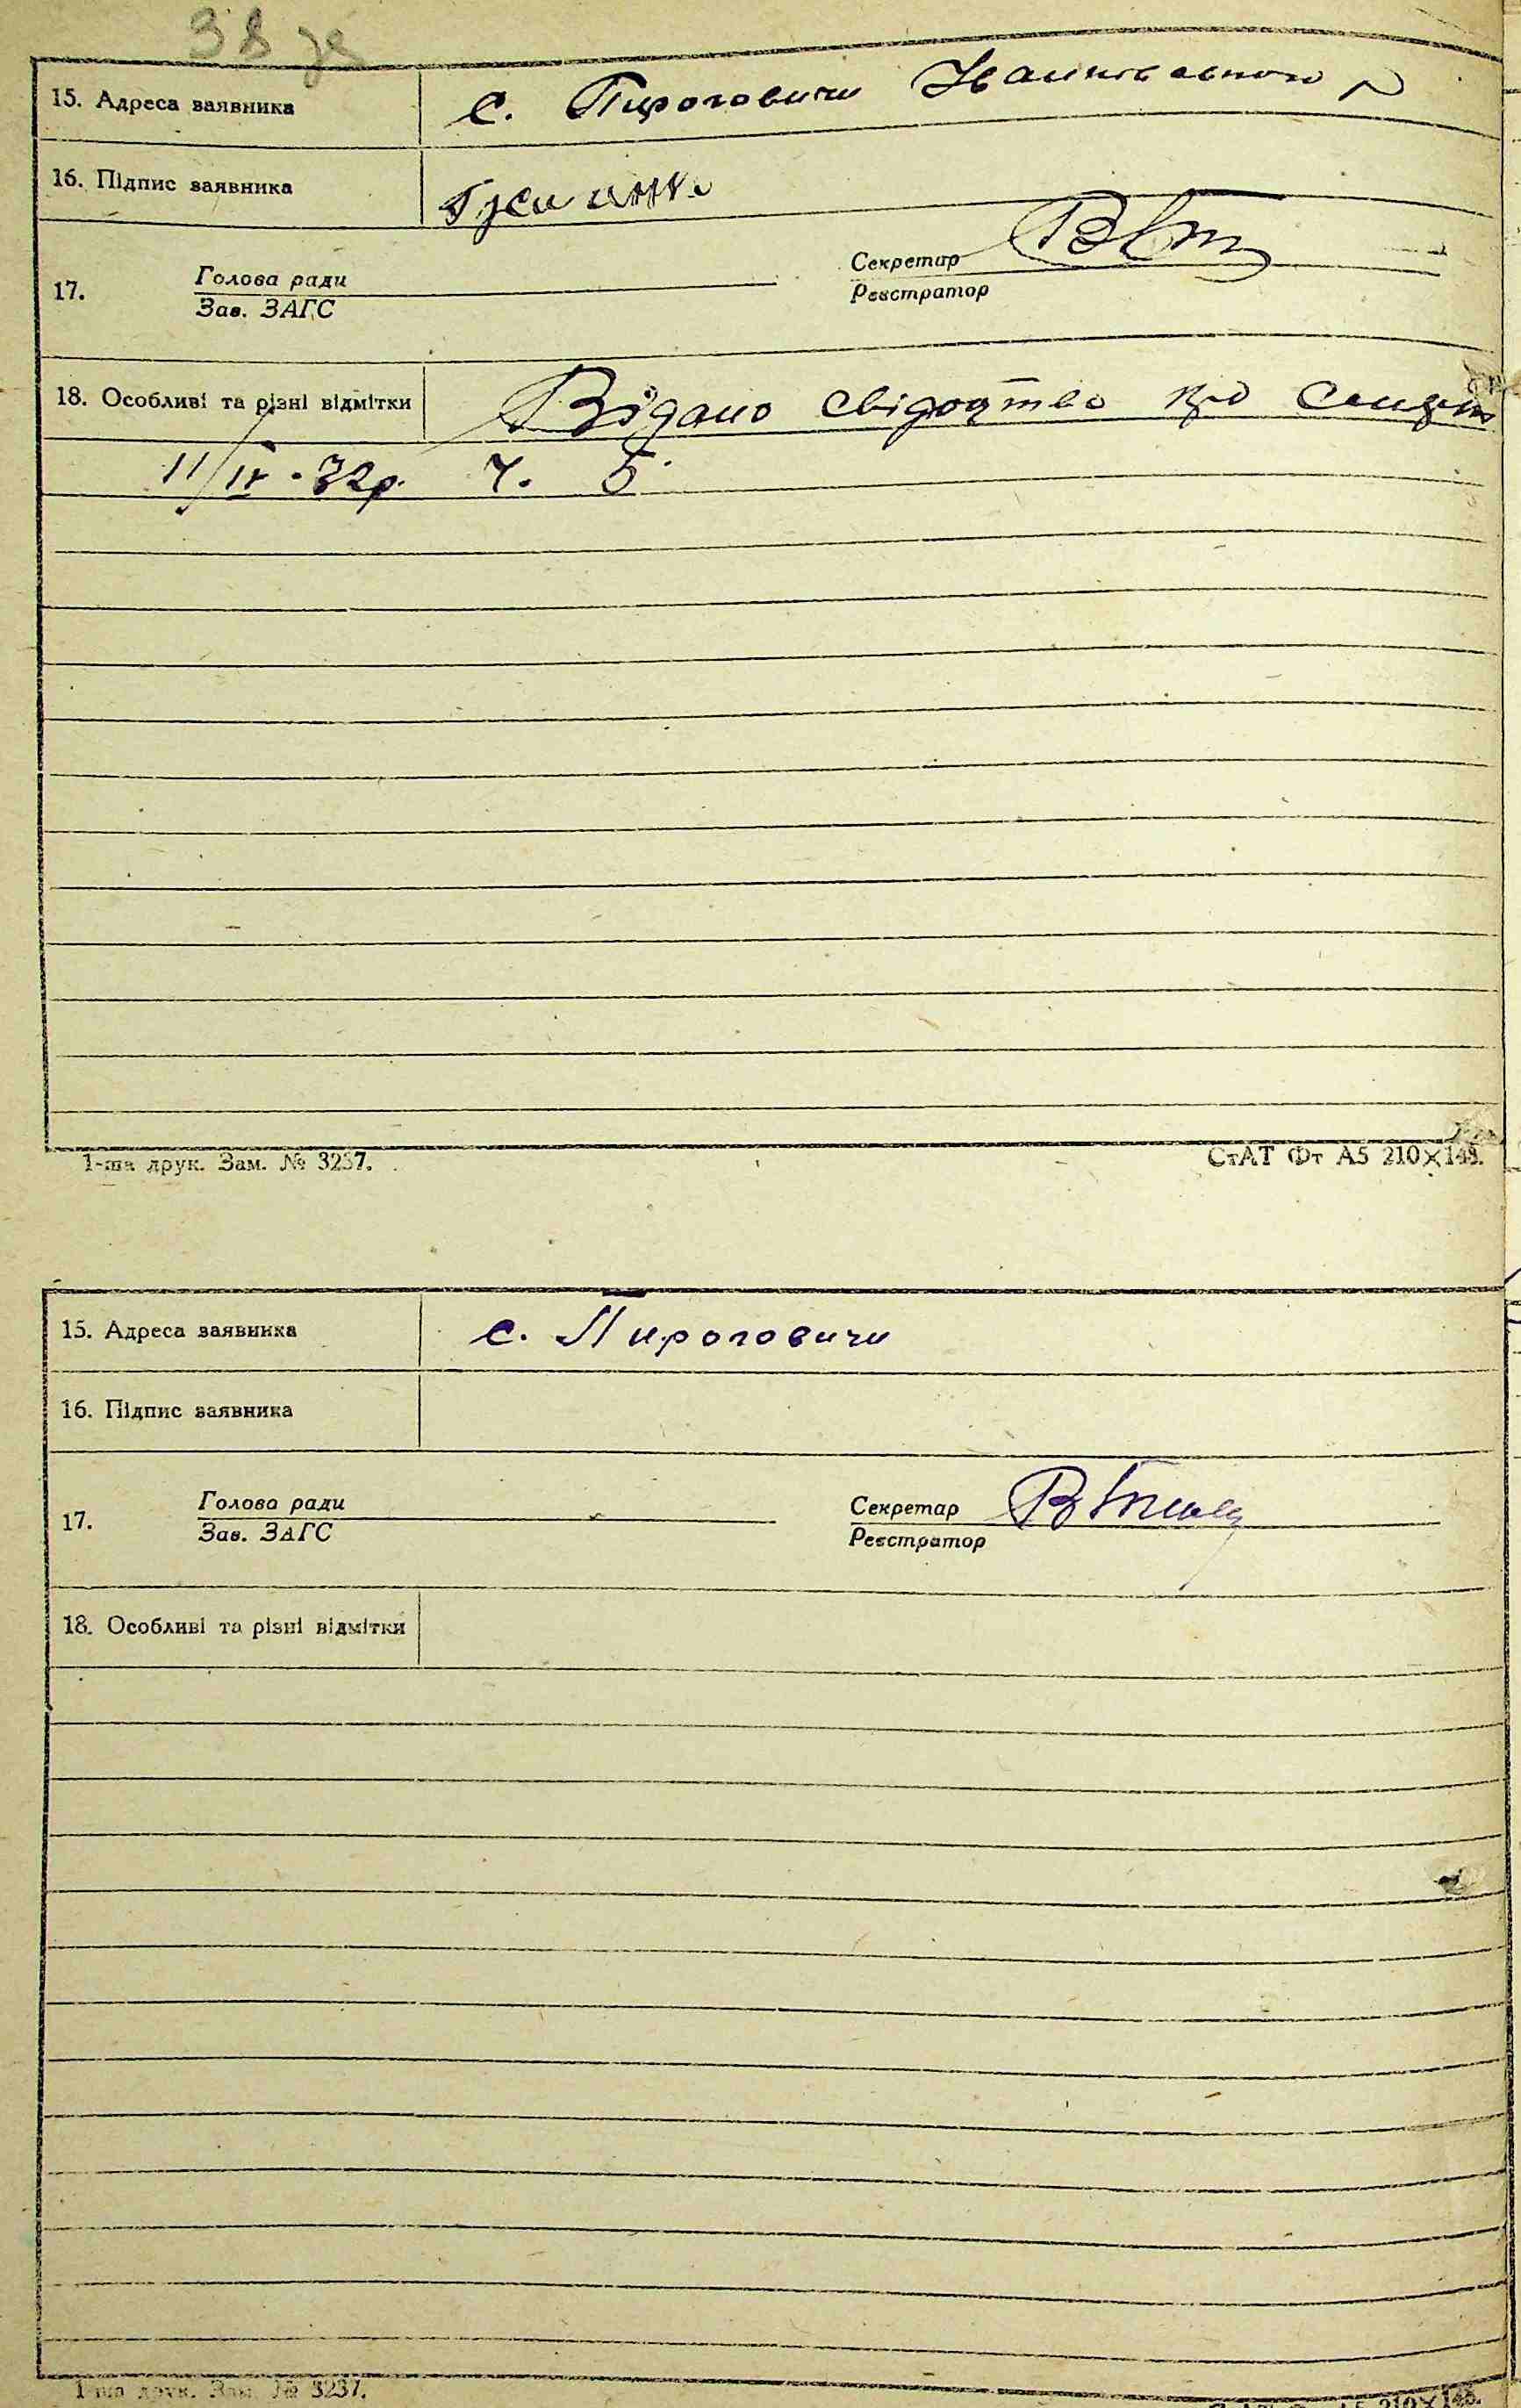 38 зв
15. Адреса заявника с. Пироговичи
16. Підпис заявника
Секретар
Голова ради
17.
Зав. ЗАГС
Реєстратор
18. Особливі та різні відмітки Відано свідоцтво про смерть
11/IV-32р. Ч. 5
1-ша друк. Зам. № 3237.
СтАТ Фт А5 210×148.
15. Адреса заявника с. Пироговичи
16. Підпис заявника
Голова ради
Секретар
17.
Зав. ЗАГС
Реєстратор
18. Особливі та різні відмітки
1-ша друк. Зам. № 3237.
СтАТ Фт А5 210×148.